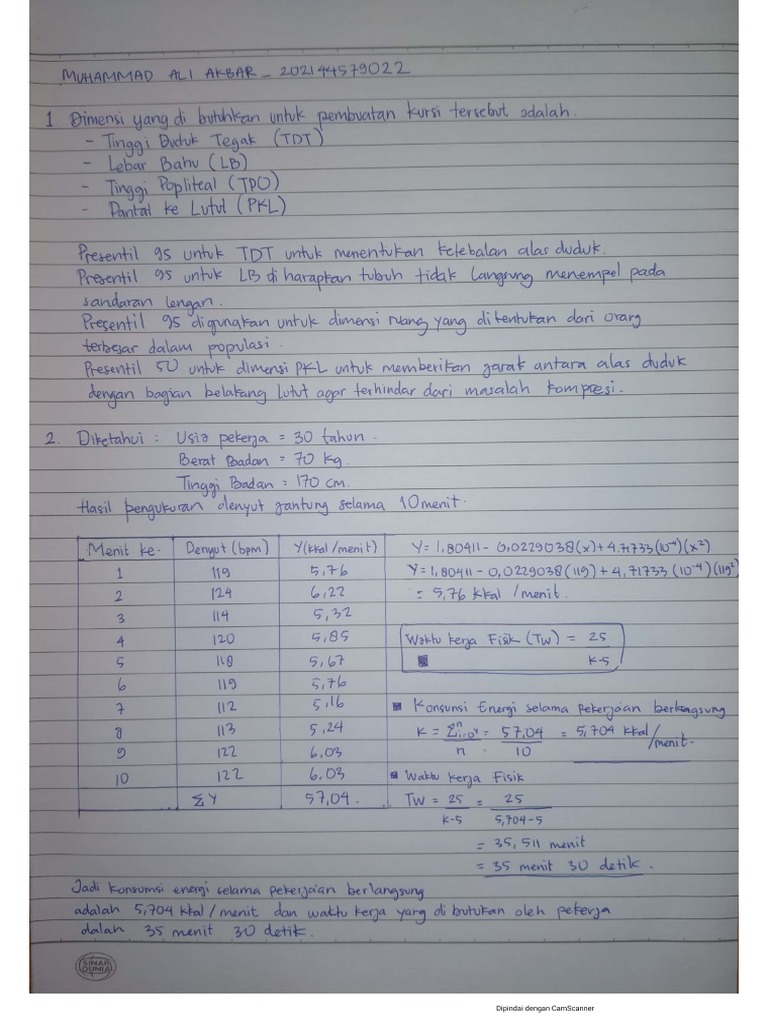 MUHAMMAD ALI AKBAR _ 202144579022
1 Dimensi yang di butuhkan untuk pembuatan kursi tersebut adalah.
- Tinggi Duduk Tegak (TDT)
- Lebar Bahu (LB)
- Tinggi Popliteal (TPO)
- Pantat ke Lutut (PKL)
Presentil 95 untuk TDT untuk menentukan ketebalan alas duduk.
Presentil 95 untuk LB di harapkan tubuh tidak langsung menempel pada
sandaran lengan.
Presentil 95 digunakan untuk dimensi ruang yang ditentukan dari orang
terbesar dalam populasi.
Presentil 50 untuk dimensi PKL untuk memberikan jarak antara alas duduk
dengan bagian belakang lutut agar terhindar dari masalah kompresi.
2. Diketahui : Usia pekerja = 30 tahun.
Berat Badan = 70 kg.
Tinggi Badan = 170 cm.
Hasil pengukuran denyut jantung selama 10 menit.
Menit ke. Denyut (bpm) Y(kkal/menit)
1 119 5,76
2 124 6,22
3 114 5,32
4 120 5,85
5 118 5,67
6 119 5,76
7 112 5,16
8 113 5,24
9 122 6,03
10 122 6,03
ΣY 57,04.
Y = 1,80411 - 0,0229038(x) + 4.71733(10⁻⁴)(x²)
Y = 1,80411 - 0,0229038(119) + 4,71733(10⁻⁴)(119²)
= 5,76 kkal/menit.
Waktu kerja Fisik (Tw) = 25
K-5
Konsunsi Energi selama pekerjaan berlangsung
K = Σ = 57,04 = 5,704 kkal/menit.
n 10
Waktu kerja Fisik
TW = 25 = 25
K-5 5,704-5
= 35,511 menit
= 35 menit 30 detik.
Jadi konsumsi energi selama pekerjaan berlangsung
adalah 5,704 kkal/menit dan waktu kerja yang di butukan oleh pekerja
dalah 35 menit 30 detik.
SINAR
DUNIA
Dipindai dengan CamScanner